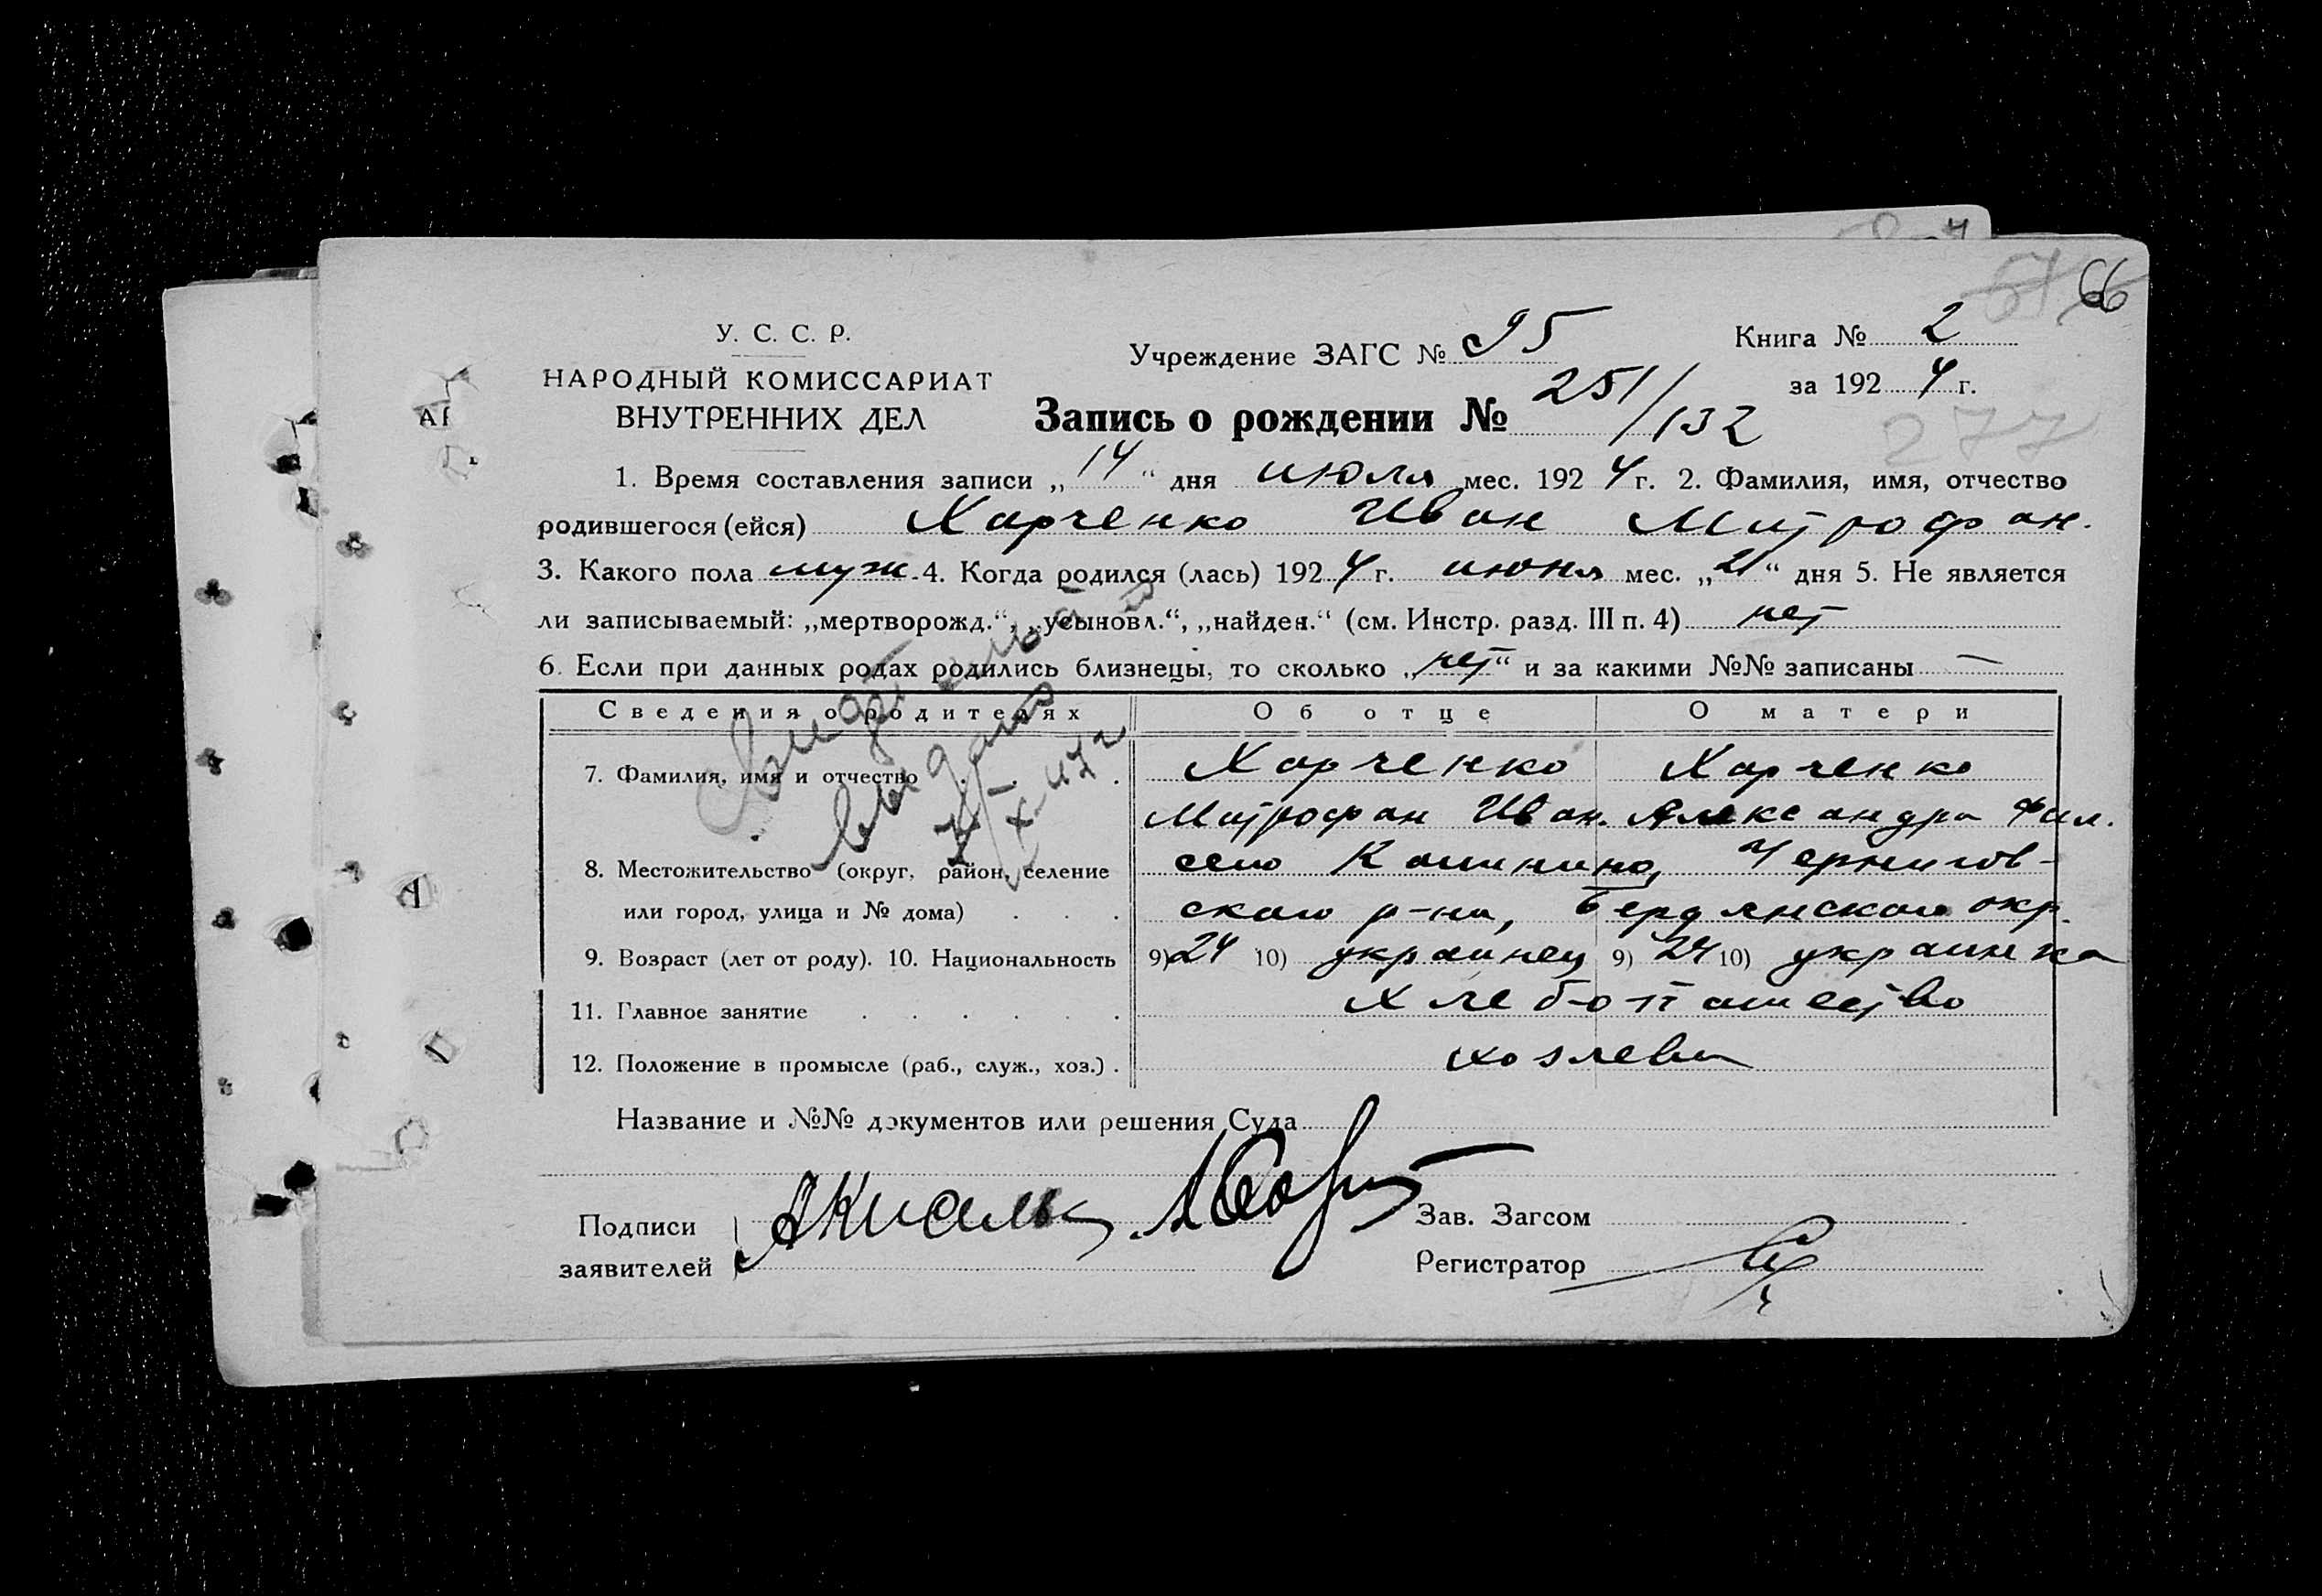 66
У. С. С. Р.
НАРОДНЫЙ КОМИССАРИАТ
ВНУТРЕННИХ ДЕЛ
Учреждение ЗАГС № 95
Книга № 2
за 1924 г.
Запись о рождении № 251/132
277
1. Время составления записи „14“ дня июля мес. 1924 г. 2. Фамилия, имя, отчество
родившегося (ейся) Харченко Иван Митрофан.
3. Какого пола муж. 4. Когда родился (лась) 1924 г. июня мес. „21“ дня 5. Не является
ли записываемый: „мертворожд.“, „усыновл.“, „найден.“ (см. Инстр. разд. III п. 4) нет
6. Если при данных родах родились близнецы, то сколько „нет“ и за какими №№ записаны —
Сведения о родителях Об отце О матери
7. Фамилия, имя и отчество Харченко Харченко
Митрофан Иван. Александра Фил.
8. Местожительство (округ, район, селение село Чернигов-
или город, улица и № дома) ского р-на, Бердянского окр.
9. Возраст (лет от роду). 10. Национальность 9) 24 10) украинец 9) 24 10) украинка
11. Главное занятие Хлебопашество
12. Положение в промысле (раб., служ., хоз.) хозяева
выдано
Название и №№ документов или решения Суда
Подписи
заявителей
Зав. Загсом
Регистратор